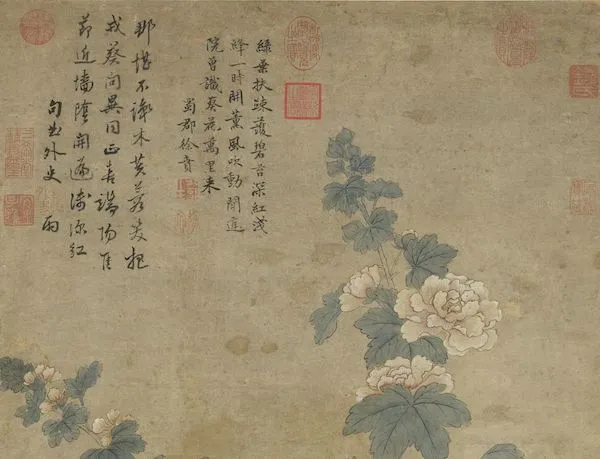 綠葉扶疎護碧苔深紅淺
絳一時開薰風吹動閒庭
院曾識葵花萬里來
蜀郡徐賁
木芙蓉莫把
戎葵向異同正喜端陽佳
節近墻陰開遍淺深紅
句曲外史 雨